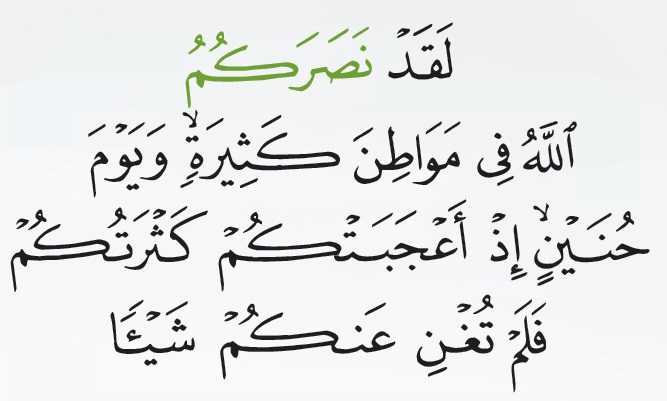 لَقَدۡ نَصَرَكُمُ
ٱللَّهُ فِي مَوَاطِنَ كَثِيرَةٖ وَيَوۡمَ
حُنَيۡنٍ إِذۡ أَعۡجَبَتۡكُمۡ كَثۡرَتُكُمۡ
فَلَمۡ تُغۡنِ عَنكُمۡ شَيۡـٔٗا